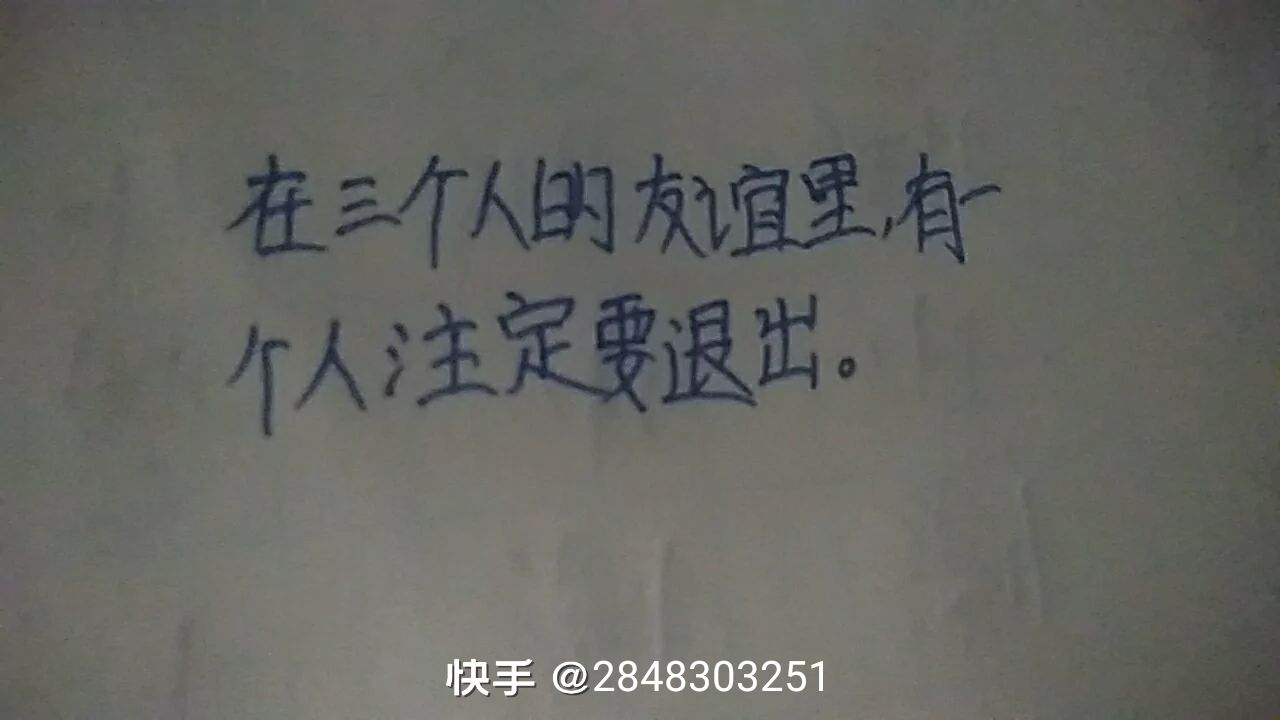 在三个人的友谊里,有一
个人注定要退出。
快手 @2848303251